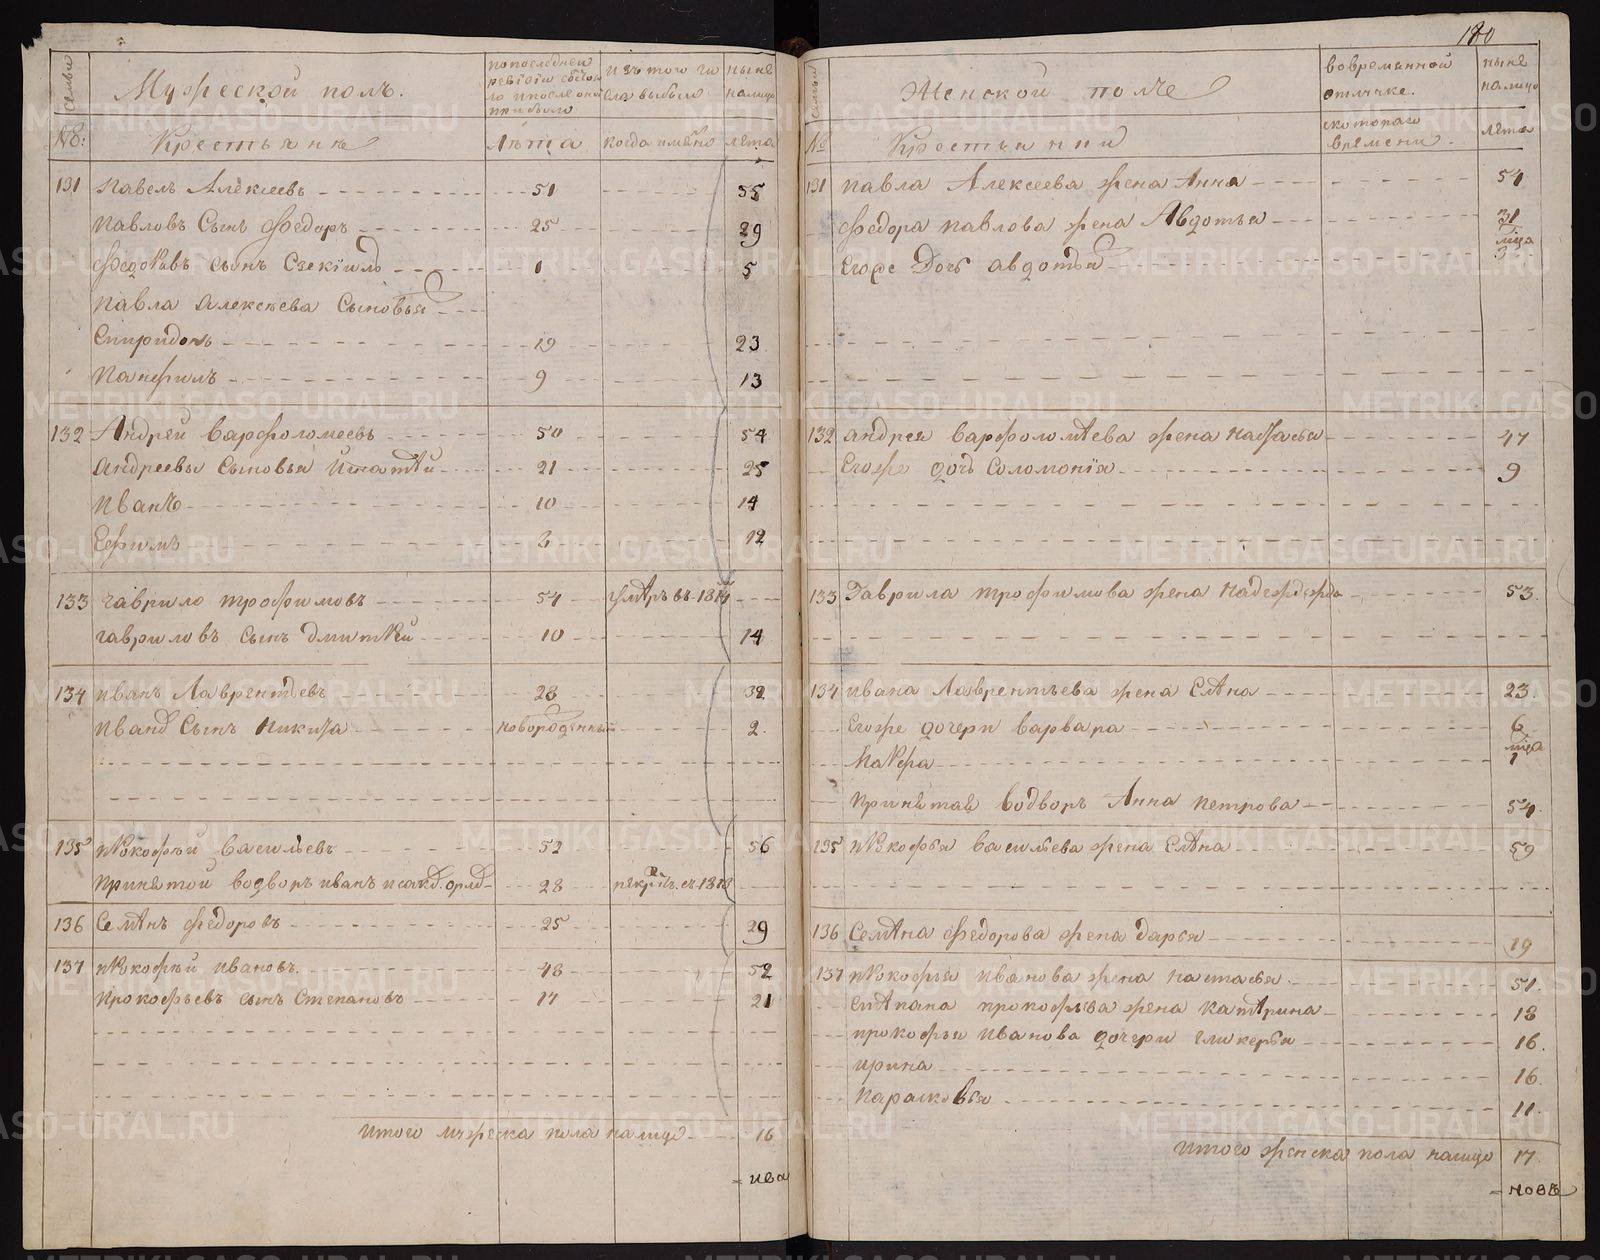 180
семьи
Мужеской полъ.
по последней ревизии состояло и после оной прибыло
изъ того числа выбыло
ныне налицо
№:
Крестьяне
Лѣта
когда имянно
лета
131 Павелъ Алексеевъ 51 55
Павловъ Сынъ Федоръ 25 29
Федоровъ сынъ 1 5
Павла Алексѣева Сыновья
Спиридонъ 19 23
Панфилъ 9 13
132 Андрей Варфоломеевъ 50 54
Андреевы Сыновья Игнатей 21 25
Иванъ 10 14
Ефимъ 12
133 Гаврило Трофимовъ 54 умѣръ въ 1814
Гавриловъ Сынъ Дмитрей 10 14
134 Иванъ Лаврентьевъ 28 32
Ивана Сынъ Никита новорожденный 2
135 Прокофѣй Васильевъ 52 56
Принятой водворъ Иванъ 28 1813
136 Семѣнъ Федоровъ 25 29
137 Прокофѣй Ивановъ. 48 52
Прокофьевъ сынъ Степановъ 17 21
Итого мужеска пола налицо 16
= ива
семьи
Женской полъ
вовременной отлучке.
ныне налицо
№
Крестьянки
скотораго времени.
лета
131 Павла Алексеева жена Анна 54
Федора Павлова жена Авдотья 31
Егоже Дочь Авдотья мца 3
132 Андрея Варфоломѣева жена Настасья 47
Егоже дочь Соломонія 9
133 Гаврила Трофимова жена Надежда 53
134 Ивана Лаврентьева жена Елѣна 23
Егоже дочери Варвара 6
Марфа мца 1
Принятая водворъ Анна Петрова 54
135 Прокофья Васильева жена Елѣна 59
136 Семѣна Федорова жена Дарья 19
137 Прокофья Иванова жена Настасья 51
Стѣпана Прокофьева жена Катѣрина 18
Прокофья Иванова дочери Гликерья 16
Ирина 16
Парасковья 11
Итого женска пола налицо 17
= новъ
METRIKI.GASO-URAL.RU